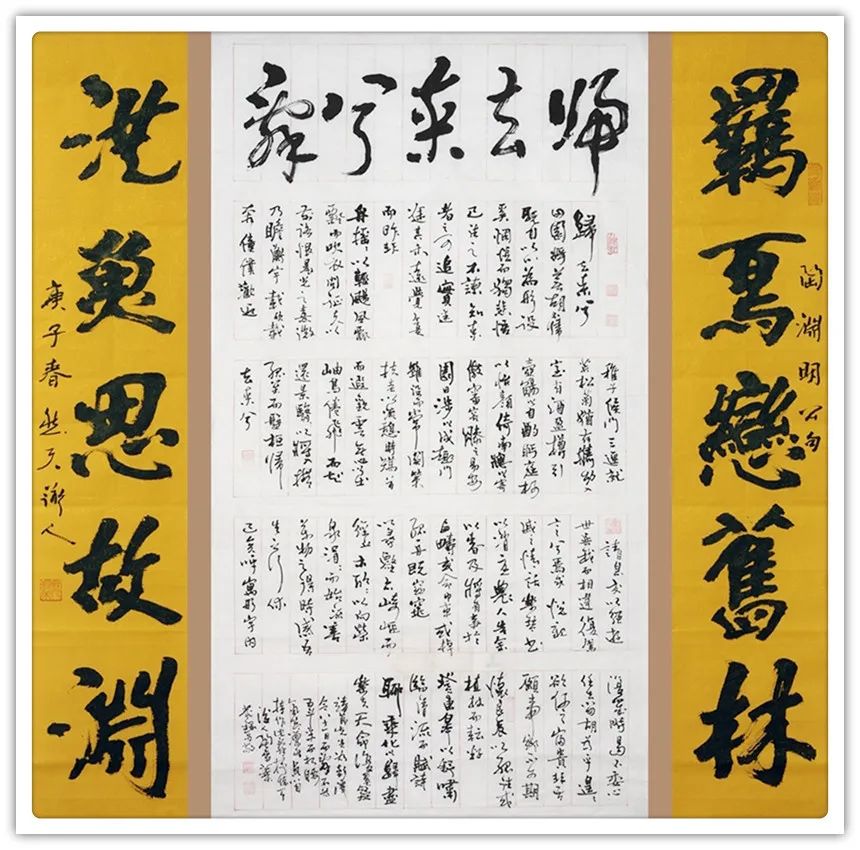 归去来兮辞
羈鳥戀舊林
陶淵明公句
歸去来兮
田園將蕪胡不歸
既自以心為形役
奚惆悵而獨悲悟
已往之不諫知来
者之可追實迷
途其未遠覺今是
而昨非
舟搖以輕颺風飄
飄而吹衣問征夫以
前路恨晨光之熹微
乃瞻衡宇載欣載
奔僮僕歡迎
稚子候門三逕就
荒松菊猶存攜幼入
室有酒盈樽引
壺觴自酌眄庭柯
以怡顏倚南窗以寄
傲審容膝之易安
園日涉以成趣門
雖設而常關策
扶老以流憩時矯首
而遐觀雲無心以出
岫鳥倦飛而知
還景翳以將
孤松而盤桓歸
去来兮
請息交以絕遊
世與我而相違復駕
言兮焉求悅親
戚之情話樂琴書
以消憂農人告余
以春及將有事於
西疇或命巾車或棹
孤舟既窈窕
以尋壑亦崎嶇而
經丘木欣欣以向榮
泉涓涓而始流善
萬物之得時感吾
生之行休
已矣乎寓形宇内
復幾時曷不委心
任去留胡為乎遑遑
欲何之富貴非吾
願帝鄉不可期
懷良辰以孤往或
植杖而耘耔
登東皋以舒嘯
臨清流而賦詩
聊乘化以歸盡
樂夫天命復奚疑
池魚思故淵
庚子春